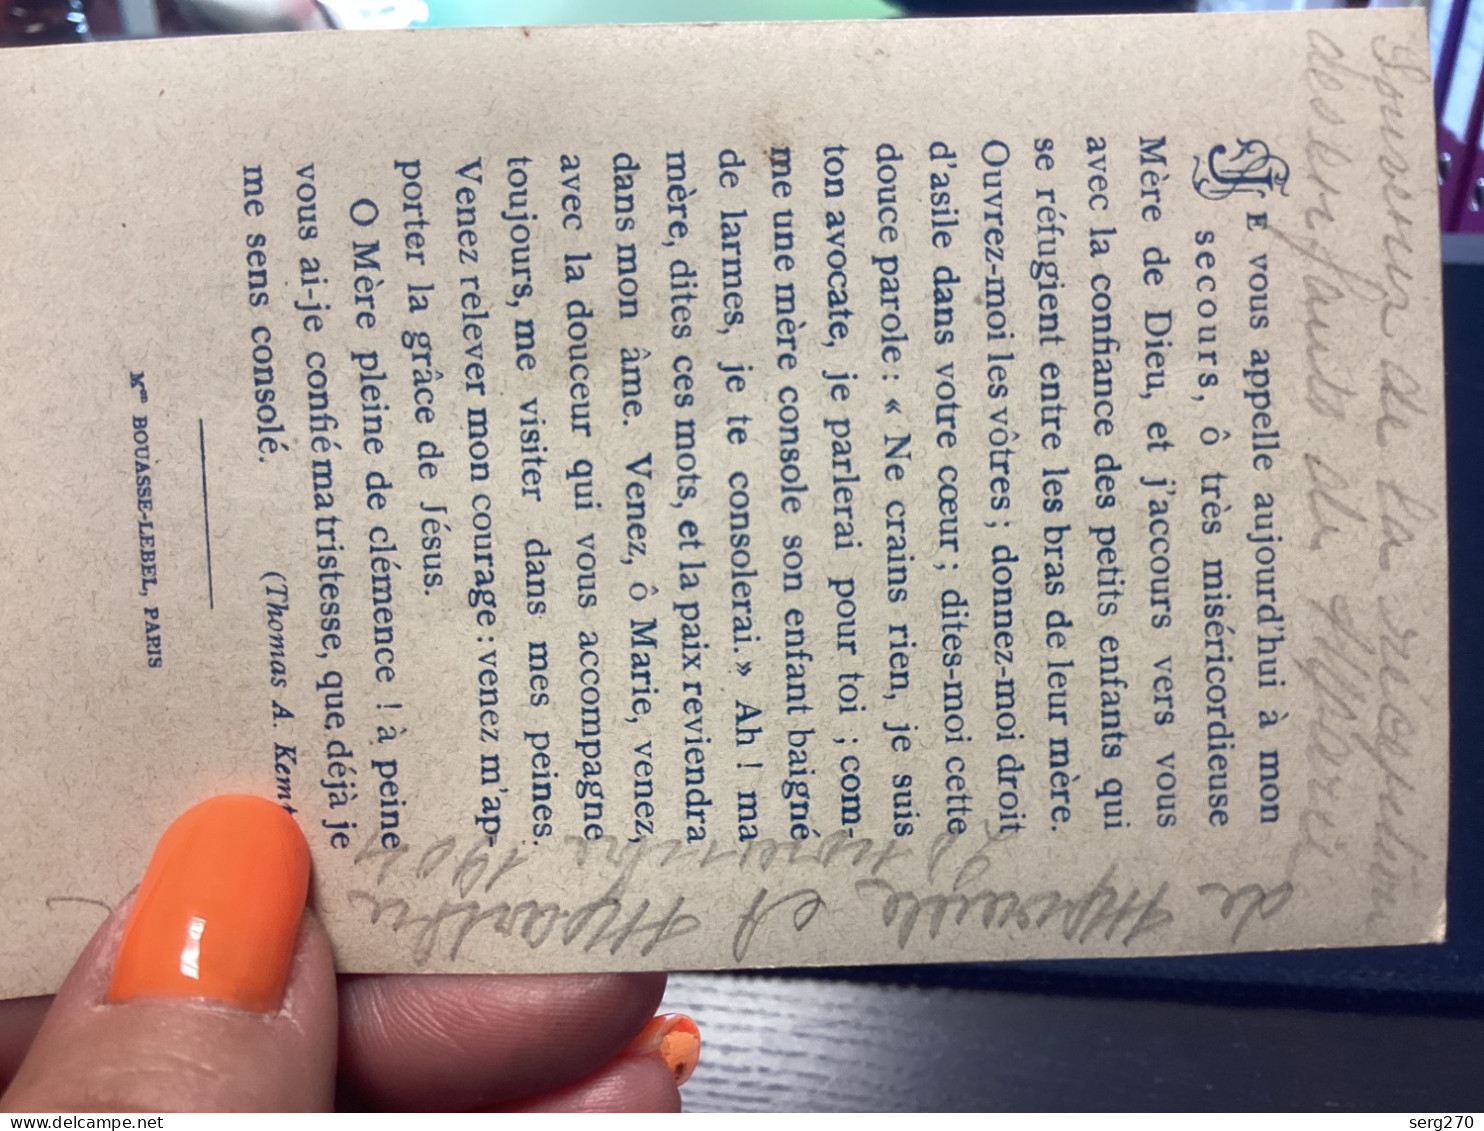 Souvenir de la réception
des enfants de Marie
JE vous appelle aujourd'hui à mon
secours, ô très miséricordieuse
Mère de Dieu, et j'accours vers vous
avec la confiance des petits enfants qui
se réfugient entre les bras de leur mère.
Ouvrez-moi les vôtres ; donnez-moi droit
d'asile dans votre cœur ; dites-moi cette
douce parole : « Ne crains rien, je suis
ton avocate, je parlerai pour toi ; com-
me une mère console son enfant baigné
de larmes, je te consolerai. » Ah ! ma
mère, dites ces mots, et la paix reviendra
dans mon âme. Venez, ô Marie, venez,
avec la douceur qui vous accompagne
toujours, me visiter dans mes peines.
Venez relever mon courage : venez m'ap-
porter la grâce de Jésus.
O Mère pleine de clémence ! à peine
vous ai-je confié ma tristesse, que, déjà je
me sens consolé. (Thomas A. Kemp
Mon BOUASSE-LEBEL, PARIS
de
et Marthe
novembre
delcampe.net
serg270